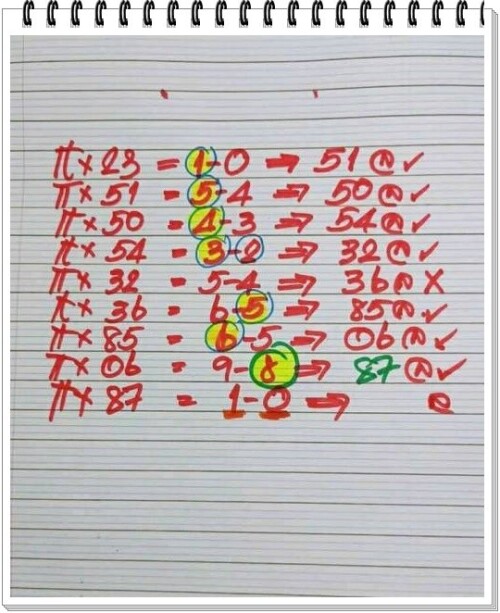 π × 23 = 1-0 → 51 ล ✓
π × 51 = 5-4 → 50 ล ✓
π × 50 = 4-3 → 54 ล ✓
π × 54 = 3-2 → 32 ล ✓
π × 32 = 5-4 → 36 ล X
π × 36 = 6-5 → 85 ล ✓
π × 85 = 6-5 → 06 ล ✓
π × 06 = 9-8 → 87 ล ✓
π × 87 = 1-0 → ล